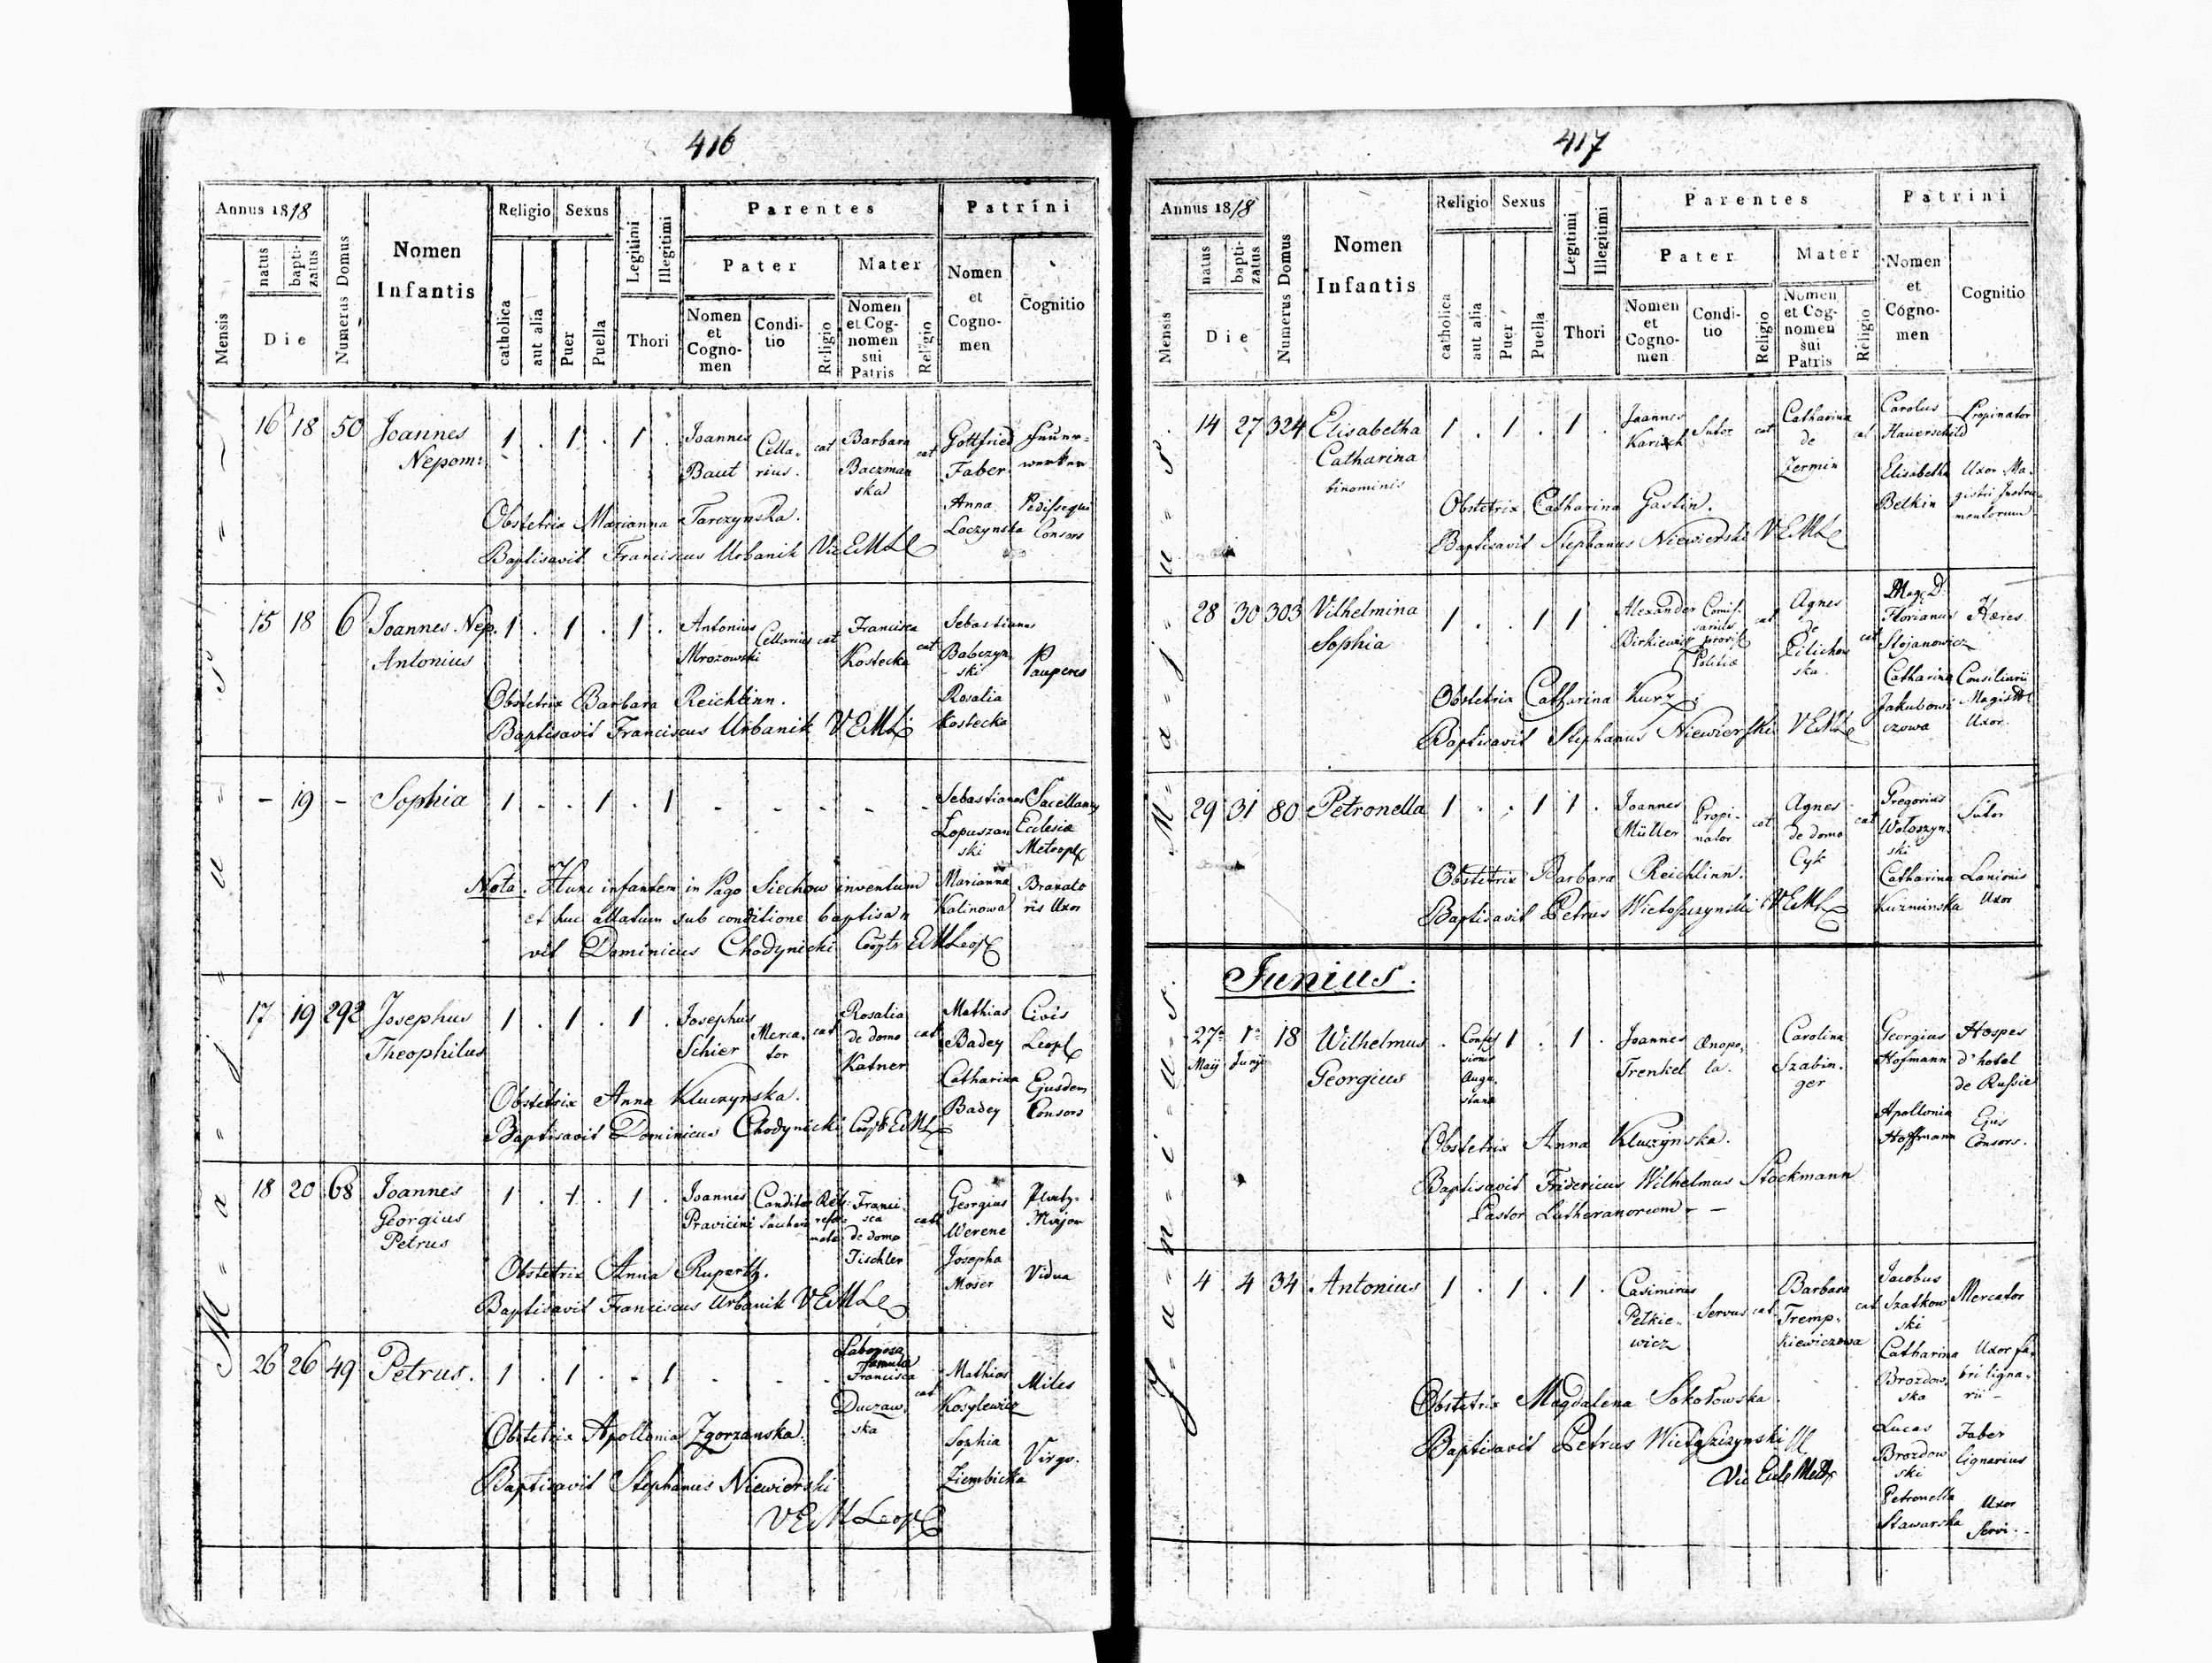 416
Annus 1818
Mensis
natus
bapti-
zatus
Die
Numerus Domus
Nomen
Infantis
Religio
catholica
aut alia
Sexus
Puer
Puella
Legitimi
Illegitimi
Thori
Parentes
Pater
Nomen
et
Cogno-
men
Condi-
tio
Religio
Mater
Nomen
et Cog-
nomen
sui
Patris
Religio
Patrini
Nomen
et
Cogno-
men
Cognitio
Majus
16 18 50 Joannes
Nepom:
1 . 1 . 1 .
Joannes
Baut
Cella-
rius.
cat
Barbara
Baczman
ska
cat
Gottfried
Faber
Anna
Loczynska
Pedissequi
Consors
Obstetrix Marianna Tarczynska.
Baptisavit Franciscus Urbanik Vic EMLe
15 18 6 Joannes Nep.
Antonius
1 . 1 . 1 .
Antonius
Mrozowski
Cellarius cat
Francisca
Kostecka
cat
Sebastianus
Babczyn
ski
Rosalia
Kostecka
Pauperes
Obstetrix Barbara Reichlinn.
Baptisavit Franciscus Urbanik VEML
- 19 - Sophia
1 . . 1 . 1 - - - - -
Sebastianus
Lopuszan
ski
Sacellanus
Eclesiæ
Metropl
Marianna
Kalinowa
Braxato
ris Uxor
Nota. Hunc infantem in Pago Siechow inventum
et huc allatum sub conditione baptisa
vit Dominicus Chodynicki Coopts EMLeopl
17 19 292 Josephus
Theophilus
1 . 1 . 1 .
Josephus
Schier
Merca-
tor
cat
Rosalia
de domo
Katner
cat
Mathias
Badey
Civis
Leopl
Catharina
Badey
Ejusdem
Consors
Obstetrix Anna Kluczynska.
Baptisavit Dominicus Chodynicki Coopt EML
18 20 68 Joannes
Georgius
Petrus
1 . 1 . 1 .
Joannes
Pravicini
Canditor
Sacchari
Rel.
refor
mata
Franci
sca
de domo
Tischler
cath
Georgius
Werene
Platz-
Major
Josepha
Moser
Vidua
Obstetrix Anna Ruperth.
Baptisavit Franciscus Urbanik VEMLe
26 26 49 Petrus.
1 . 1 . . 1 . . .
Laboriosa
famula
Francisca
Duczaw-
ska
cat
Mathias
Kosylewicz
Miles
Sophia
Ziembicka
Virgo.
Obstetrix Apollonia Zgorzanska.
Baptisavit Stephanus Niewierski
VEMLeopl
417
Annus 1818
Mensis
natus
bapti-
zatus
Die
Numerus Domus
Nomen
Infantis
Religio
catholica
aut alia
Sexus
Puer
Puella
Legitimi
Illegitimi
Thori
Parentes
Pater
Nomen
et
Cogno-
men
Condi-
tio
Religio
Mater
Nomen
et Cog-
nomen
sui
Patris
Religio
Patrini
Nomen
et
Cogno-
men
Cognitio
Majus.
14 27 324 Elisabetha
Catharina
binominis
1 . 1 . 1 .
Joannes
Karisch
Sutor
cat
Catharina
de
Zermin
cat
Carolus
Hauerschild
Propinator
Elisabetha
Belkin
Uxor Ma-
gistri Instru-
mentorum
Obstetrix Catharina Gastin.
Baptisavit Stephanus Niewierski VEMLe
28 30 303 Vilhelmina
Sophia
1 . . 1 1 .
Alexander
Birkiewicz
Comis-
sarius
provis
Politiæ
cat
Agnes
de
Cilichow
ska.
cat
Mag. D.
Florianus
Stojanowicz
Hæres
Catharina
Jakubowi
czowa
Consiliarii
Magist
Uxor.
Obstetrix Catharina Kurz.
Baptisavit Stephanus Niewierski VEMLe
29 31 80 Petronella
1 . . 1 1 .
Joannes
Müller
Propi-
nator
cat
Agnes
de domo
Cyk
cat
Gregorius
Wołoszyn-
ski
Sutor
Catharina
Kuzminska
Lanionis
Uxor
Obstetrix Barbara Reichlinn.
Baptisavit Petrus Wietoszynski VEML
Junius.
Junius.
27a
Maij
1a
Junij
18 Wilhelmus
Georgius
. Confes
sionis
Augu-
stana
1 . 1 .
Joannes
Trenkel
Œnopo-
la.
Carolina
Szabin-
ger
Georgius
Hofmann
Hospes
d'hotel
de Russie
Apollonia
Hoffmann
Ejus
Consors.
Obstetrix Anna Kluczynska.
Baptisavit Fridericus Wilhelmus Stockmann
Pastor Lutheranorum. -
4 4 34 Antonius
1 . 1 . 1 .
Casimirus
Petkie-
wicz
Servus cat
Barbara
Tremp-
kiewiczowa
cat
Jacobus
Szatkow
ski
Mercator
Catharina
Brozdow-
ska
Uxor fa-
bri ligna-
rii -
Lucas
Brozdow
ski
Faber
Lignarius
Petronella
Stawarska
Uxor
Servi.
Obstetrix Magdalena Sokołowska.
Baptisavit Petrus Wietoszczynski
Vic Ecle Metr